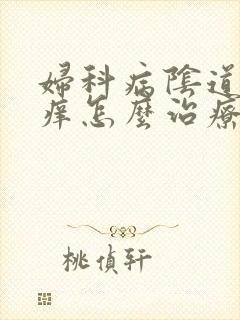 婦科病陰道
癢怎麼治療
桃偵軒